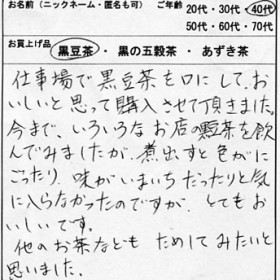 お名前(ニックネーム・匿名も可) ご年齢 20代・30代・40代
50代・60代・70代
お買上げ品
黒豆茶・黒の五穀茶・あずき茶
仕事場で黒豆茶を口にして、お
いしいと思って購入させて頂きました。
今まで、いろいろなお店の黒豆茶を飲
んでみましたが、煮出すと色がに
ごったり、味がいまいちだったりと気
に入らなかったのですが、とてもお
いしいです。
他のお茶なども ためしてみたいと
思いました。